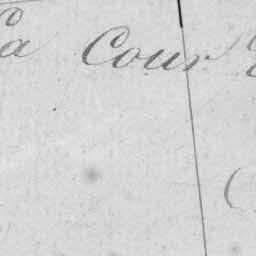 La Cour